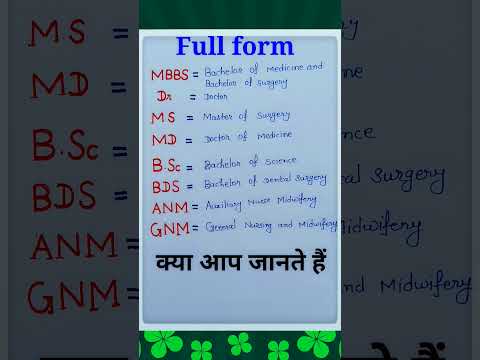 Full form
MBBS = Bachelor of Medicine and
Bachelor of Surgery
Dr = Doctor
MS = Master of Surgery
MD = Doctor of Medicine
B.Sc = Bachelor of Science
BDS = Bachelor of Dental Surgery
ANM = Auxiliary Nurse Midwifery
GNM = General Nursing and Midwifery
क्या आप जानते हैं
MS =
MD =
B.Sc =
BDS =
ANM =
GNM =
ence
al Surgery
idwifery
nd Midwifery